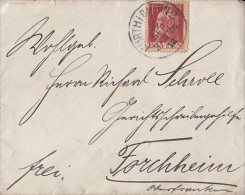 Wohlgeb.
Herrn Richard Scholl
Gerichtsschreibergehilfe
frei.
Forchheim
Oberfranken